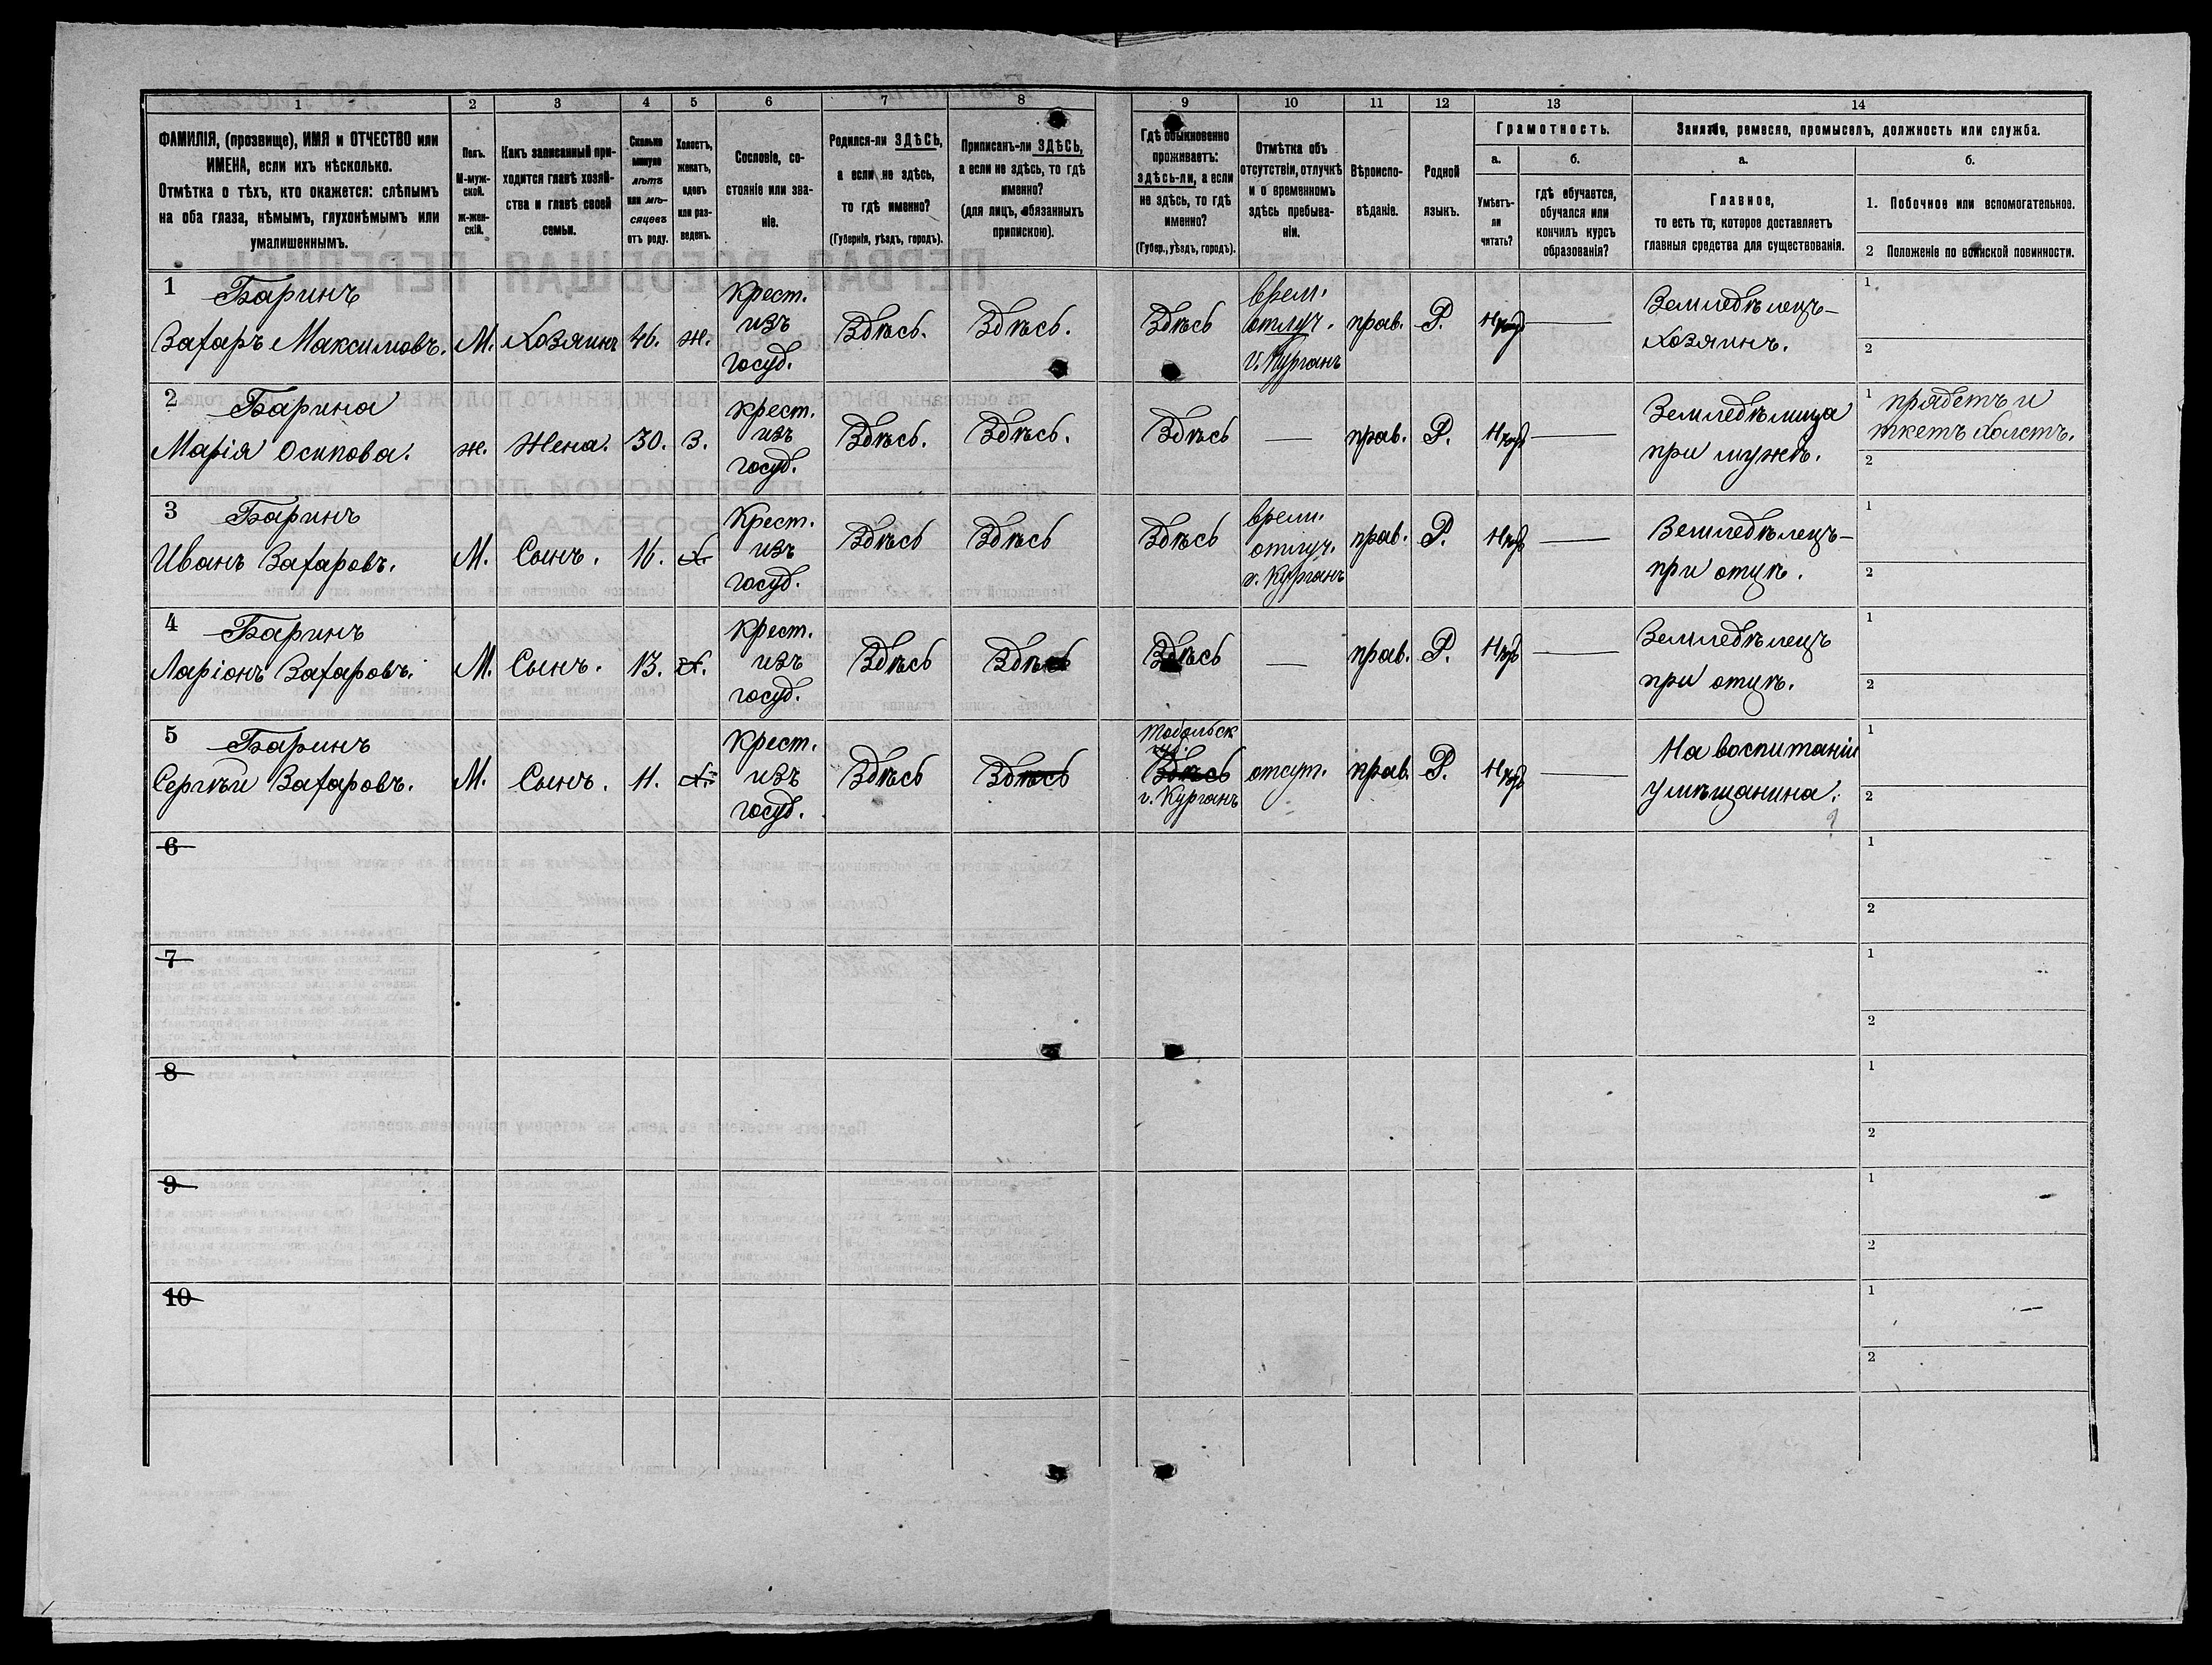 1 2 3 4 5 6 7 8 9 10 11 12 13 14
ФАМИЛІЯ, (прозвище), ИМЯ и ОТЧЕСТВО или
ИМЕНА, если ихъ нѣсколько.
Отмѣтка о тѣхъ, кто окажется: слѣпымъ
на оба глаза, нѣмымъ, глухонѣмымъ или
умалишеннымъ.
Полъ.
М-муж-
ской.
ж-жен-
скій.
Какъ записанный при-
ходится главѣ хозяй-
ства и главѣ своей
семьи.
Сколько
минуло
лѣтъ
или мѣ-
сяцевъ
отъ роду.
Холостъ,
женатъ,
вдовъ
или раз-
веденъ.
Сословіе, со-
стояніе или зва-
ніе.
Родился-ли ЗДѢСЬ,
а если не здѣсь,
то гдѣ именно?
(Губернія, уѣздъ, городъ).
Приписанъ-ли ЗДѢСЬ,
а если не здѣсь, то гдѣ
именно?
(для лицъ, обязанныхъ
припискою).
Гдѣ обыкновенно
проживаетъ:
здѣсь-ли, а если
не здѣсь, то гдѣ
именно?
(Губер., уѣздъ, городъ).
Отмѣтка объ
отсутствіи, отлучкѣ
и о временномъ
здѣсь пребыва-
ніи.
Вѣроиспо-
вѣданіе.
Родной
языкъ.
Грамотность.
а.
Умѣетъ-
ли
читать?
б.
гдѣ обучается,
обучался или
кончилъ курсъ
образованія?
Занятіе, ремесло, промыселъ, должность или служба.
а.
Главное,
то есть то, которое доставляетъ
главныя средства для существованія.
б.
1. Побочное или вспомогательное.
2 Положеніе по воинской повинности.
1 Баринъ
Захаръ Максимовъ.
М.
Хозяинъ
46.
ж.
Крест.
изъ
госуд.
Здѣсь.
Здѣсь.
Здѣсь
врем.
отлуч.
г. Курганъ
прав.
Р.
—
Земледѣлецъ—
Хозяинъ.
1
2
2 Барина
Марія Осипова.
ж.
Жена.
30.
З.
крест.
изъ
госуд.
Здѣсь.
Здѣсь.
Здѣсь
—
прав.
Р.
—
Земледѣлица
при мужѣ.
1 прядетъ и
ткетъ холстъ.
2
3 Баринъ
Иванъ Захаровъ.
М.
Сынъ.
16.
Х.
Крест.
изъ
госуд.
Здѣсь
Здѣсь
Здѣсь
врем.
отлуч.
г. Курганъ
прав.
Р.
—
Земледѣлецъ—
при отцѣ.
1
2
4 Баринъ
Ларіонъ Захаровъ.
М.
Сынъ.
13.
Х.
Крест.
изъ
госуд.
Здѣсь
Здѣсь
Здѣсь
—
прав.
Р.
—
Земледѣлецъ
при отцѣ.
1
2
5 Баринъ
Сергѣй Захаровъ.
М.
Сынъ.
11.
Х.
Крест.
изъ
госуд.
Здѣсь
Здѣсь
Тобольск
Здѣсь
г. Курганъ
отсут.
прав.
Р.
—
На воспитаніи
у мѣщанина.
1
2
6
1
2
7
1
2
8
1
2
9
1
2
10
1
2